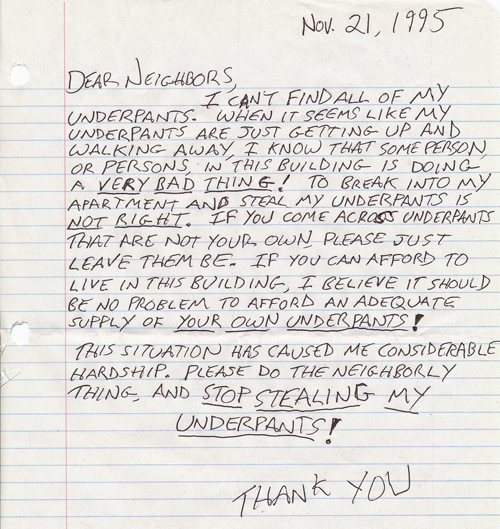 Nov. 21, 1995
DEAR NEIGHBORS,
I CAN'T FIND ALL OF MY
UNDERPANTS. WHEN IT SEEMS LIKE MY
UNDERPANTS ARE JUST GETTING UP AND
WALKING AWAY, I KNOW THAT SOME PERSON,
OR PERSONS, IN THIS BUILDING IS DOING
A VERY BAD THING! TO BREAK INTO MY
APARTMENT AND STEAL MY UNDERPANTS IS
NOT RIGHT. IF YOU COME ACROSS UNDERPANTS
THAT ARE NOT YOUR OWN, PLEASE JUST
LEAVE THEM BE. IF YOU CAN AFFORD TO
LIVE IN THIS BUILDING, I BELIEVE IT SHOULD
BE NO PROBLEM TO AFFORD AN ADEQUATE
SUPPLY OF YOUR OWN UNDERPANTS!
THIS SITUATION HAS CAUSED ME CONSIDERABLE
HARDSHIP. PLEASE DO THE NEIGHBORLY
THING, AND STOP STEALING MY
UNDERPANTS!
THANK YOU